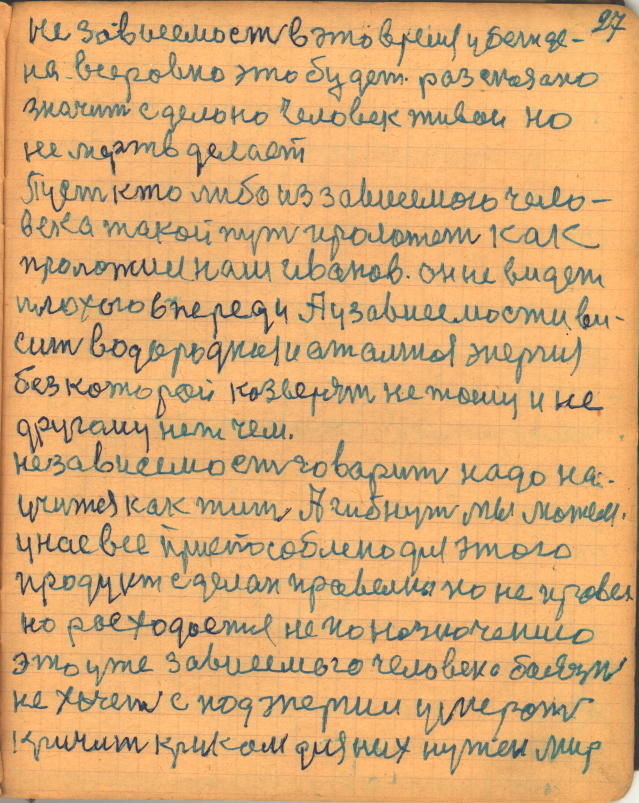 27
не зовисемост в это время убежде-
на всеровно это будет. розсказоно
значит сделоно человек живои но
не мертв делает
Пуст кто либо из зависемого чело-
века такой пут проложет как
проложил наш иванов. он не видет
плохого впереди А узависемости ви-
сит водородноя и атамноя энергия
без которой козверят не тому и не
другому неж чем.
независемост говарит надо на-
учится как жит А гибнут мы можем.
у нас все приспособлено для этого
продукт сделан провелно но не провел
но росходоется не по нозночению
это уже зависемого человека баязн
не хочет с под энергии умерат
кричит криком для них нужен мир